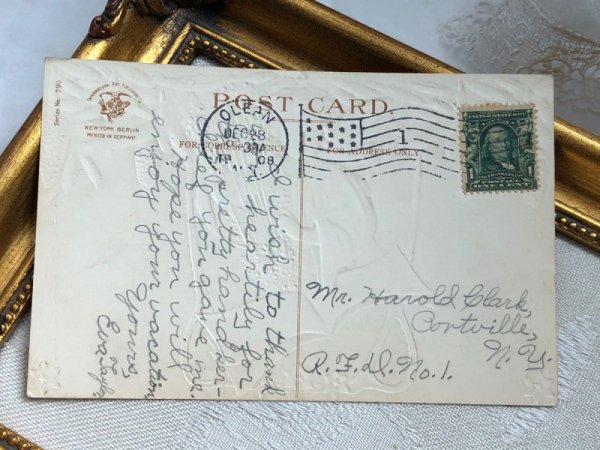 Series No. 790
International Art Publishing Co.
NEW YORK BERLIN
PRINTED IN GERMANY
POST CARD.
FOR CORRESPONDENCE
FOR ADDRESS ONLY
OLEAN
DEC 28
1908
N.Y.
1
UNITED STATES
POSTAGE
ONE CENT
I wish to thank
you heartily for
the pretty handker-
chief you gave me.
Hope you will
enjoy your vacation
Yours,
Eva
Mr. Harold Clark,
Portville,
N. Y.
R. F. D. No. 1.